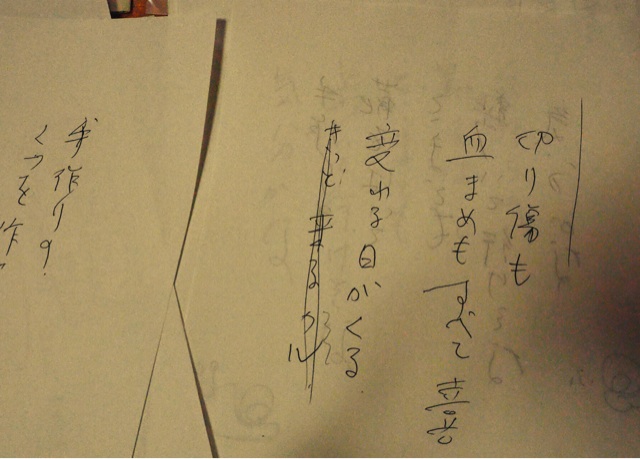 切り傷も
血まめもすべて喜
変われる日がくる
きっと来る
手作りの
くつを作